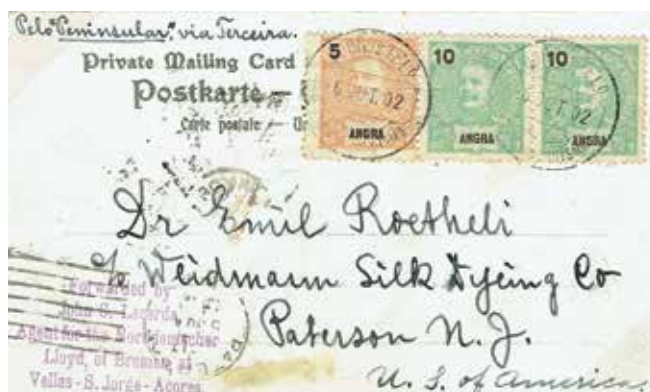 Pelo "Peninsular", via Terceira.
Private Mailing Card
Postkarte —
Carte postale —
5
ANGRA
10
ANGRA
10
ANGRA
OUT. 02
OUT. 02
Dr Emil Roetheli
c/o Weidmann Silk Dyeing Co
Paterson N. J.
U. S. of America.
Forwarded by
John S.
Agent for the Norddeutscher
Lloyd, of Bremen, at
Vellas - S. Jorge - Açores.